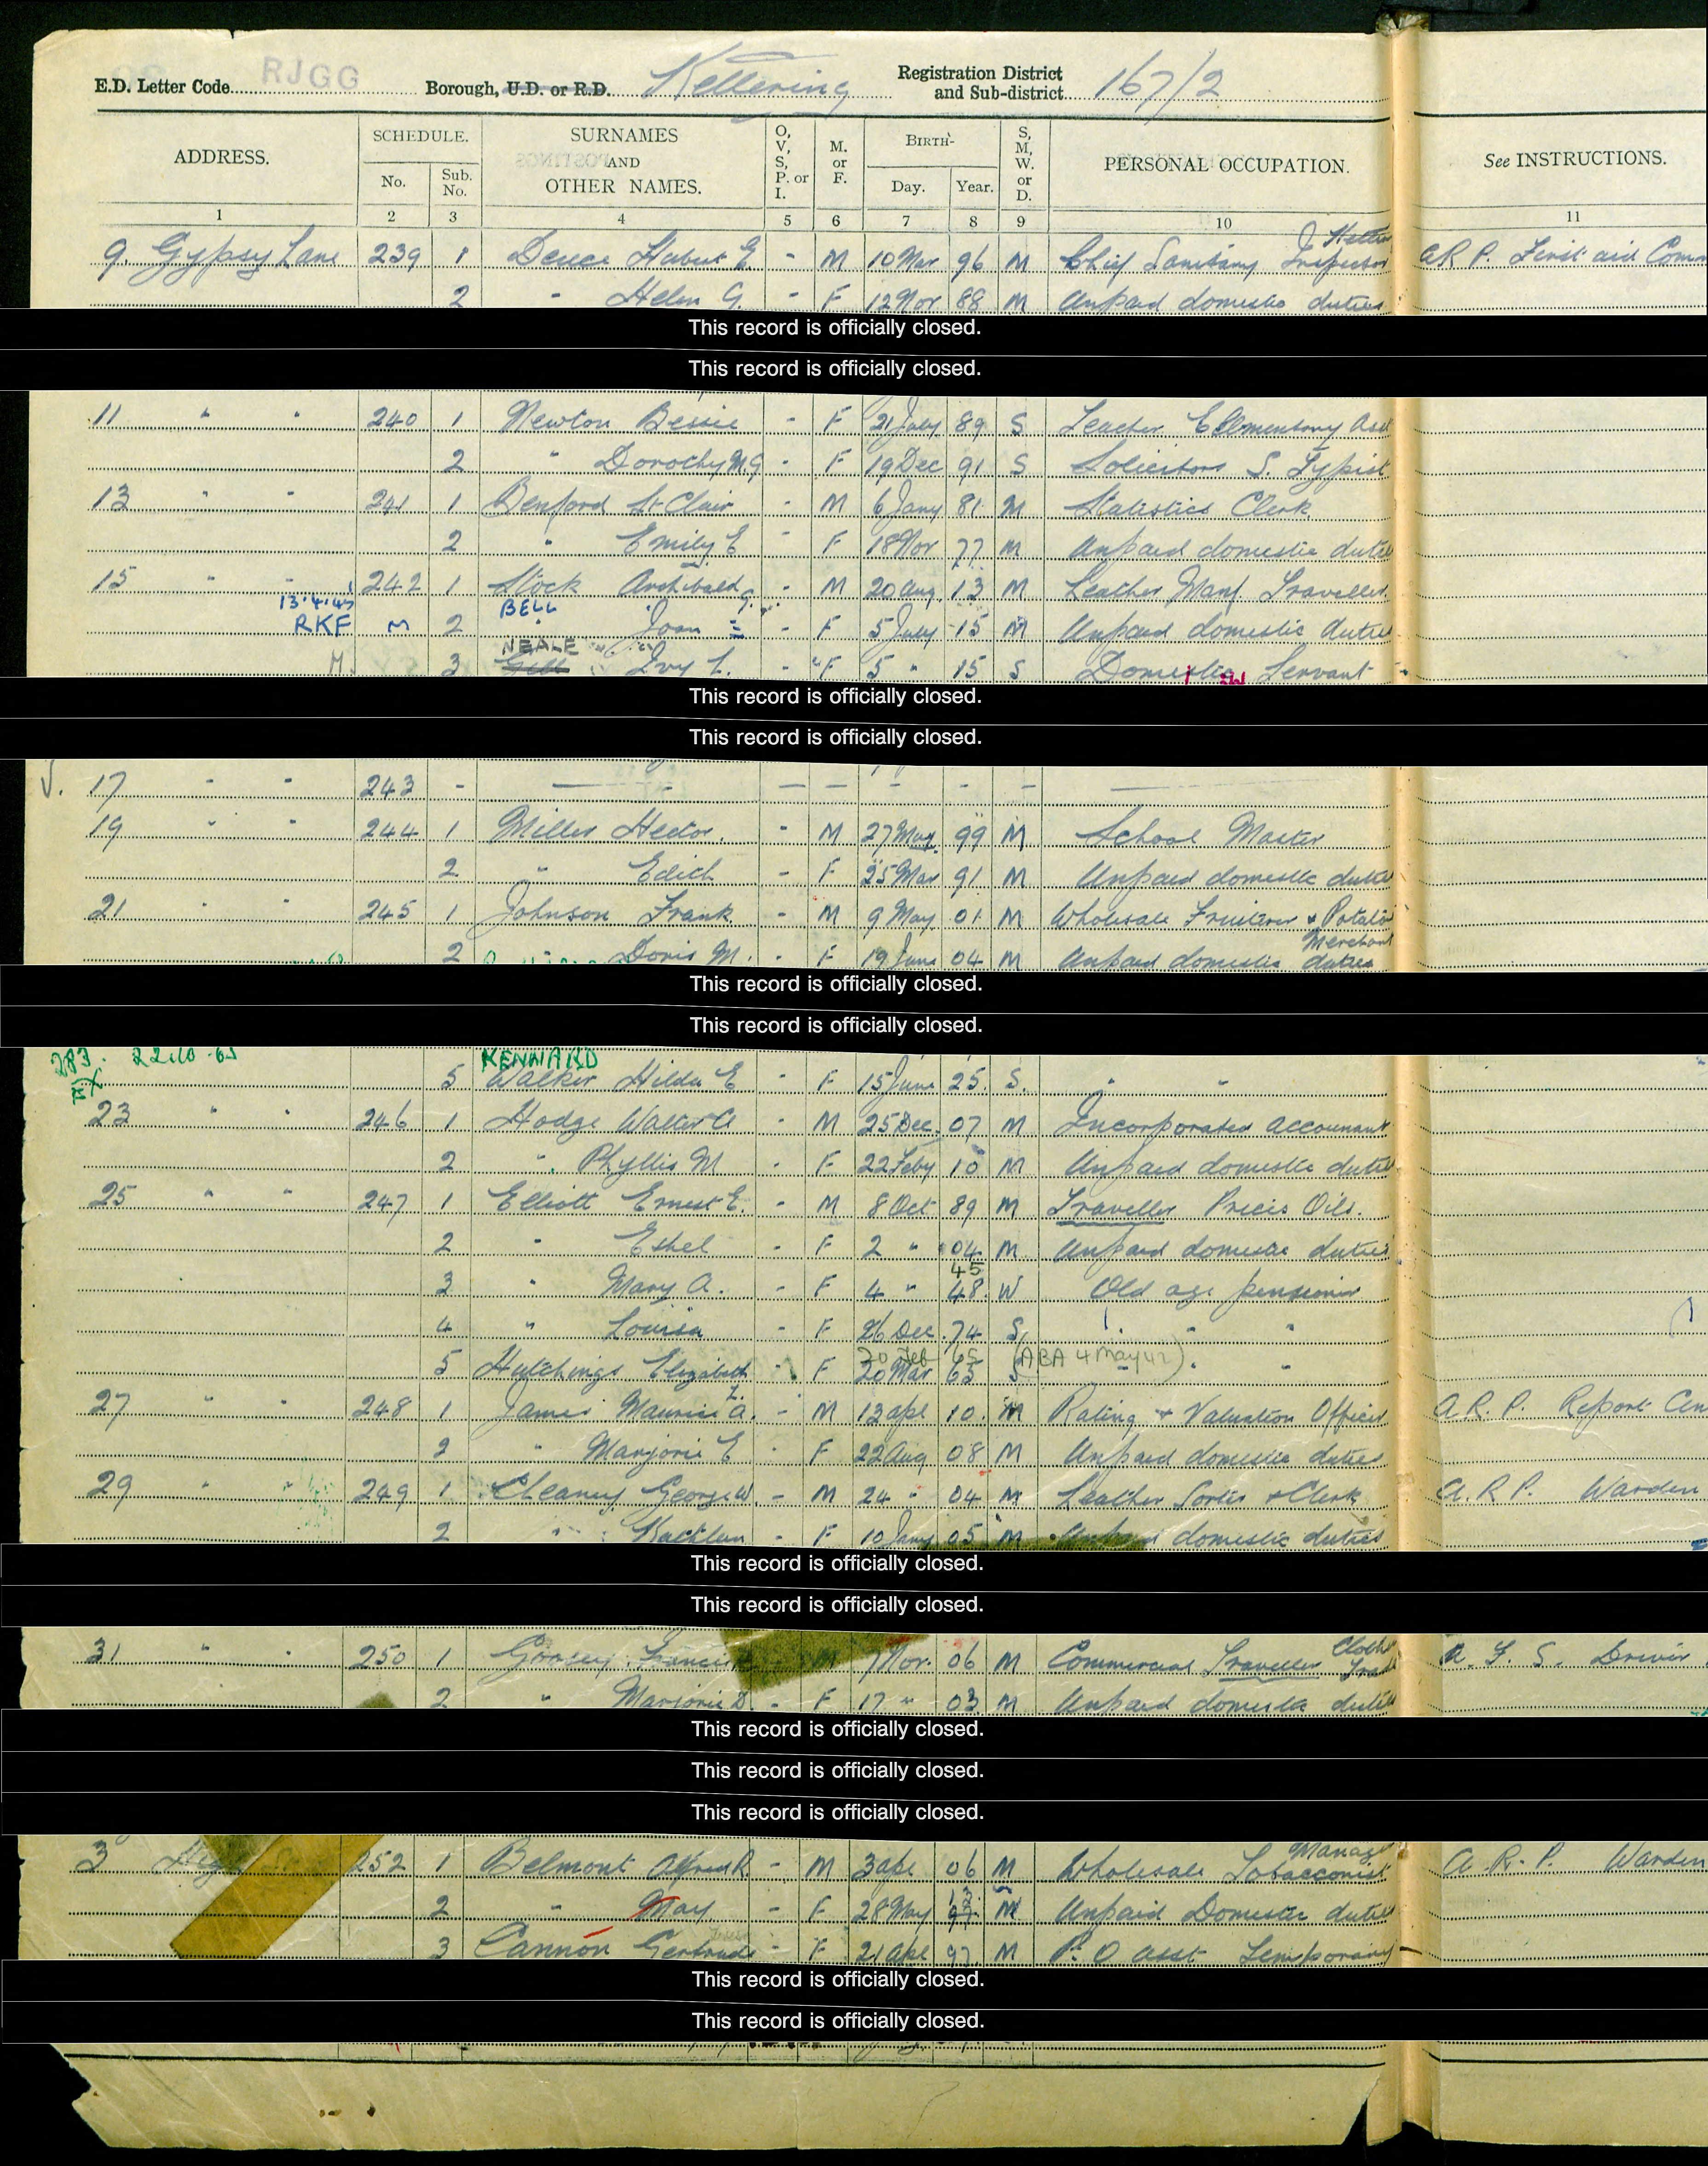 E.D. Letter Code RJGG Borough, U.D. or R.D. Kettering Registration District and Sub-district 167/2
ADDRESS. SCHEDULE. SURNAMES AND OTHER NAMES. O, V, S, P. or I. M. or F. BIRTH- S, M, W. or D. PERSONAL OCCUPATION. See INSTRUCTIONS.
No. Sub. No. Day. Year.
1 2 3 4 5 6 7 8 9 10 11
9 Gypsy Lane 239 1 E. - M 10 Mar 96 M Chief Sanitary Inspector A R P. First aid
2 " Helen G. - F 12 Nov 88 M Unpaid domestic duties
This record is officially closed.
This record is officially closed.
11 " " 240 1 Newton Bessie - F 21 July 89 S Teacher Elementary Asst
2 " Dorothy M G - F 19 Dec 91 S Solicitors S. Typist
13 " " 241 1 Benford St Clair - M 6 Jany 81 M Statistics Clerk
2 " Emily E - F 18 Nov 77 M Unpaid domestic duties
15 " " 242 1 Stock Archibald G. - M 20 Aug 13 M Leather Manf Traveller
13.4.45 BELL
RKF M 2 " Joan = - F 5 July 15 M Unpaid domestic duties
NEALE
M. 3 Ivy L. - F 5 " 15 S Domestic Servant
This record is officially closed.
This record is officially closed.
17 " " 243 - — - — — - - - —
19 " " 244 1 Miller Hector. - M 27 May 99 M School Master
2 " Edith - F 25 Mar 91 M Unpaid domestic duties
21 " " 245 1 Johnson Frank - M 9 May 01 M Wholesale Fruiterer & Potato Merchant
2 " Doris M. - F 19 June 04 M Unpaid domestic duties
This record is officially closed.
This record is officially closed.
22.10.65 KENNARD
5 Walker Hilda E - F 15 June 25. S. " "
23 " " 246 1 Hodge Walter A - M 25 Dec. 07 M Incorporated Accountant
2 " Phyllis M - F 22 Feby 10 M Unpaid domestic duties
25 " " 247 1 Elliott Ernest E. - M 8 Oct 89 M Traveller Prices Oils.
2 " Ethel - F 2 " 04 M Unpaid domestic duties
45
3 " Mary A. - F 4 " 48. W Old age pensioner
4 " Louisa - F 26 Dec 74 S, " " "
20 Feb 65 (ABA 4 May 42)
5 Hutchings Elizabeth F 20 Mar 65 S " "
27 " " 248 1 James Maurice A. - M 12 Apl 10. M Rating & Valuation Officer A.R.P. Report Cen
2 " Marjorie E - F 22 Aug 08 M Unpaid domestic duties
29 " " 249 1 Cleaney George W. - M 24 " 04 M Leather Sorter & Clerk A.R.P. Warden
2 " Kathleen - F 10 Jany 05 M Unpaid domestic duties
This record is officially closed.
This record is officially closed.
31 " " 250 1 Francis M 7 Nov. 06 M Commercial Traveller Cloth Trade A.F.S. Driver
2 " Marjorie D. - F 17 " 03 M Unpaid domestic duties
This record is officially closed.
This record is officially closed.
This record is officially closed.
3 252 1 Belmont Alfred R - M 3 Apl 06 M Wholesale Tobacconist Manager A.R.P. Warden
2 " May - F 28 May M Unpaid Domestic duties
3 Cannon Gertrude - F 21 Apl 97 M P.O Asst Temporary
This record is officially closed.
This record is officially closed.